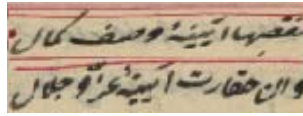 نقصها آیینهٔ وصف کمال
وان حقارت آیینهٔ عزّ و جلال